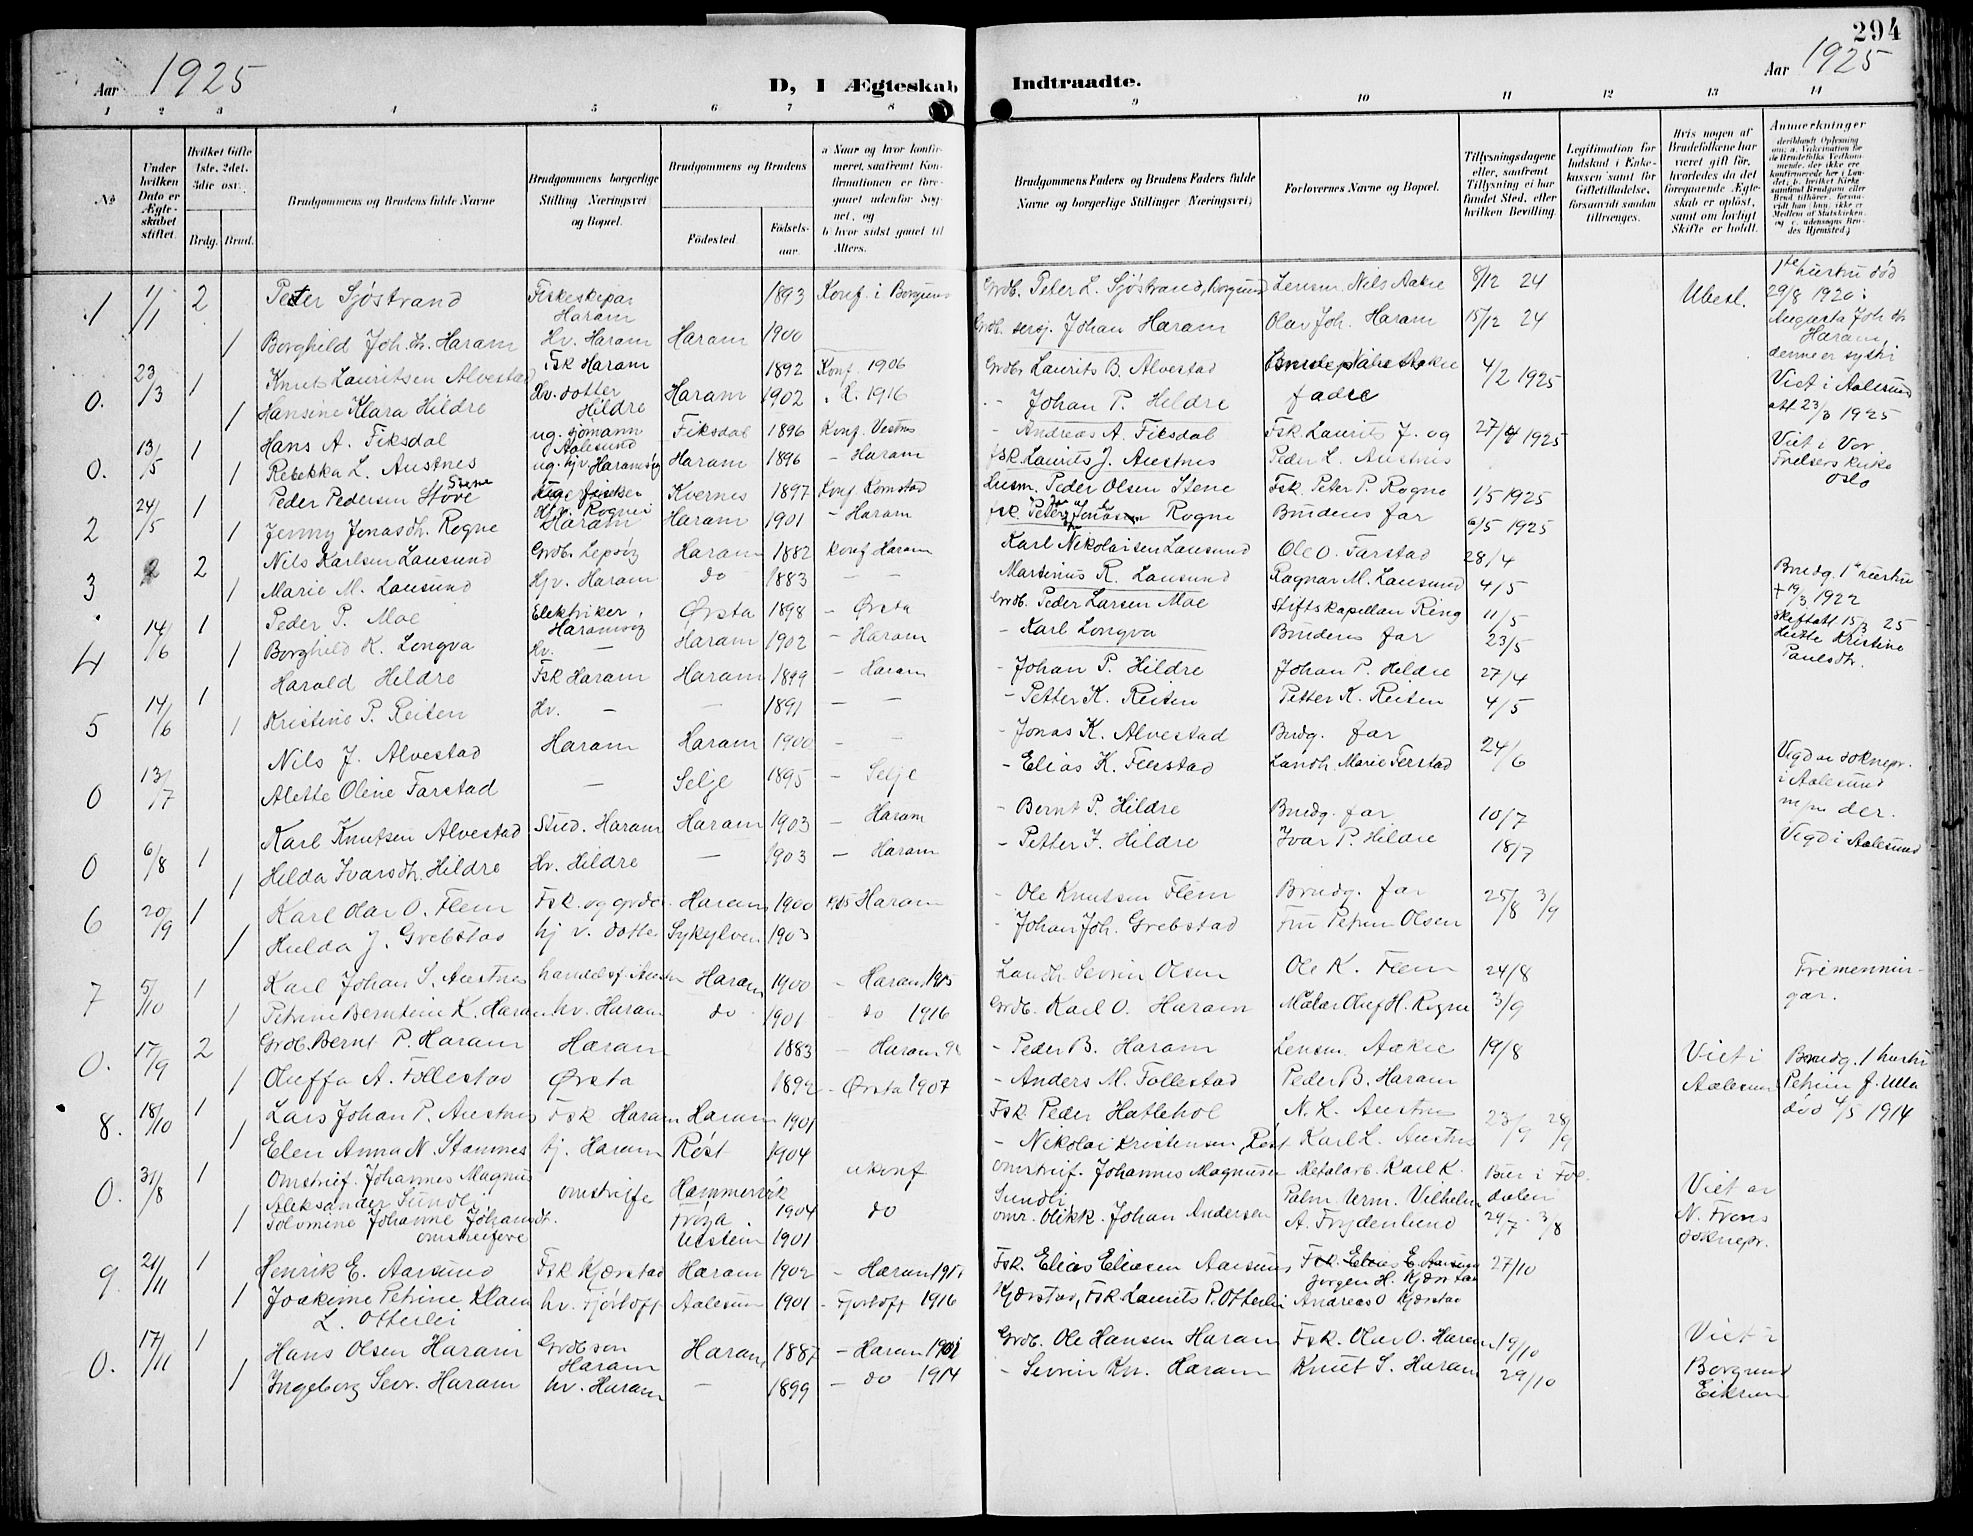 294
Aar 1925
D, I Ægteskab Indtraadte.
Aar 1925
1 2 3 4 5 6 7 8 9 10 11 12 13 14
№
Under hvilken Dato er Ægteskabet stiftet.
Hvilket Gifte 1ste, 2det, 3die osv.
Brdg. Brud.
Brudgommens og Brudens fulde Navne
Brudgommens borgerlige Stilling Næringsvei og Bopæl.
Brudgommens og Brudens
Fødested. Fødselsaar.
a Naar og hvor konfirmeret, saafremt Konfirmationen er foregaaet udenfor Sognet, og
b hvor sidst gaaet til Alters.
Brudgommens Faders og Brudens Faders fulde Navne og borgerlige Stillinger Næringsvei;
Forlovernes Navne og Bopæl.
Tillysningsdagene eller, saafremt Tillysning ei har fundet Sted, efter hvilken Bevilling.
Legitimation for Indskud i Enkekassen samt for Giftetilladelse, forsaavidt saadan tiltrænges.
Hvis nogen af Brudefolkene har været gift før, hvorledes da det foregaaende Ægteskab er opløst, samt om lovligt Skifte er holdt.
Anmerkninger
1 1/1 2 Peter Sjöstrand Fiskeskipar Haram 1893 Konf. i Borgund Grdb. Peter L. Sjöstrand, Borgund Lensm. Nils Aakre 8/12 24 Ubest. 1te hustru död 29/8 1920:
1 Borghild Joh. dt. Haram Hv. Haram Haram 1900 Johan Haram Olav Joh. Haram 15/12 24 Augusta Joh dt. Haram, denne er syster
0. 23/3 1 Knut Lauritsen Alvestad Fsk Haram 1892 Konf. 1906 Grdb. Laurits B. Alvestad 4/2 1925
1 Hansine Klara Hildre Hv. dotter Hildre Haram 1902 1916 Johan P. Hildre fadre Viet i Aalesund att 23/3 1925
0. 13/5 1 Hans A. Fiksdal ug. sjömann Aalesund Fiksdal 1896 Konf. Vestnes - Andreas A. Fiksdal Fsk. Laurits J. og 27/4 1925 Viet i Vor Frelsers kirke Oslo
1 Rebekka L. Austnes ug. hjv Haramsöy Haram 1896 - Haram fsk. Laurits J. Austnes Peder L. Austnes
2 24/5 1 Peder Pedersen Stöve Stene Kvernes 1897 Konf Kornstad Husm. Peder Olsen Stene Fsk. Peter P. Rogne 1/5 1925
1 Jenny Jonasdt. Rogne Haram Haram 1901 - Haram fsk. Rogne Brudens far 6/5 1925
3 2 Nils Karlsen Lausund Grdb. Lepsöy Haram 1882 Konf Haram Karl Nikolaisen Lausund Ole O. Farstad 28/4
1 Marie M. Lausund Hjv. Haram do 1883 - - Martinus R. Lausund Ragnar M. Lausund 4/5 Brudg. 1te hustru + 19/3 1922
4 14/6 1 Peder P. Moe Elektriker, Haramsöy Ørsta 1898 - Ørsta Grdb. Peder Larsen Moe Stiftskapellan Ring 11/5 Skifteatt 15/3 25
1 Borghild K. Longva Hv. - Haram 1902 - Haram - Karl Longva Brudens far 23/5 Hette Kristine Paulsdt.
5 14/6 1 Harald Hildre Fsk Haram Haram 1899 - Haram - Johan P. Hildre Johan P. Hildre 27/4
1 Kristine P. Reiten Hv. - - 1891 - - - Petter K. Reiten Petter K. Reiten 4/5
0 13/7 Nils J. Alvestad Haram Haram 1900 - - - Jonas K. Alvestad Brudg. far 24/6
Alette Oline Farstad - Selje 1895 - Selje - Elias K. Farstad Landh. Marie Farstad Vigd av soknepr. i Aalesund
0 6/8 1 Karl Knutsen Alvestad Stud. Haram Haram 1903 - Haram - Bernt P. Hildre Brudg. far 10/7
1 Hilda Ivarsdt. Hildre Hv. Hildre - 1903 - Haram - Petter J. Hildre Ivar P. Hildre 18/7 Vigd i Aalesund
6 20/9 1 Karl Olav O. Flem Fsk. og grdb. Haram 1900 1915 Haram - Ole Knutsen Flem Brudg. far 25/8 3/9
1 Hulda J. Grebstad hj v. dotte Sykylven 1903 - Johan Joh. Grebstad Fru Petrine Olsen
7 5/10 1 Karl Johan S. Austnes Haram 1900 - Haram 1915 Landh. Sevrin Olsen Ole K. Flem 24/8 Frimenningar.
1 Petrine Berntine K. Haram hv. Haram do 1901 - do 1916 Grdb. Karl O. Haram Malar Oluf H. Rogne 3/9
0. 17/9 2 Grdb. Bernt P. Haram Haram 1883 - Haram - Peder B. Haram Lensm. Aakre 19/8 Viet i Aalesund Brudg. 1 hustru
1 Oluffa A. Follestad Ørsta 1892 - Ørsta 1907 - Anders M. Follestad Peder B. Haram Petrine J. Ulla död 4/5 1914
8. 18/10 1 Lars Johan P. Austnes Fsk Haram Haram 1901 Fsk. Peder Hatlehol N. L. Austnes 23/9 28/9
1 Elen Anna N. Stamnes tj. Haram Røst 1904 - Nikolai Kristensen, Røst Karl L. Austnes
0. 31/8 1 Omstreif. Johannes Magnus Aleksander Sundli omstreife Hammervik Fröya 1904 ukonf omstreif. Johannes Magnusen Sundli Metalarb. Karl K. Palm Urm. Vilhelm Viet av N. Frons soknepr.
1 Solomine Johanne Johansdt. omstreifere Utstein 1901 do Johan Andersen A. Frydenlund 29/7 - 3/8
9. 21/11 1 Henrik E. Aarsund Fsk Kjærstad Haram 1902 - Haram Fsk. Elias Eliasen Aarsund, Fsk. Elias E. Aarsund 27/10
1 Joakime Petrine Klara L. Otterlei hv. Fjörtoft Aalesund 1901 - Fjörtoft 1916 Kjærstad, Fsk Laurits P. Otterlei Jörgen H. Kjærstad Andreas O Kjærstad
0. 17/11 1 Hans Olsen Haram Grdb sön Haram Haram 1887 - Haram Grdb. Ole Hansen Haram Fsk. Olav O. Haram 19/10 Viet i Borgund
1 Ingeborg Sevr. Haram hv. Haram - 1899 - do 1914 - Sevrin Kn. Haram Knut S. Haram 29/10